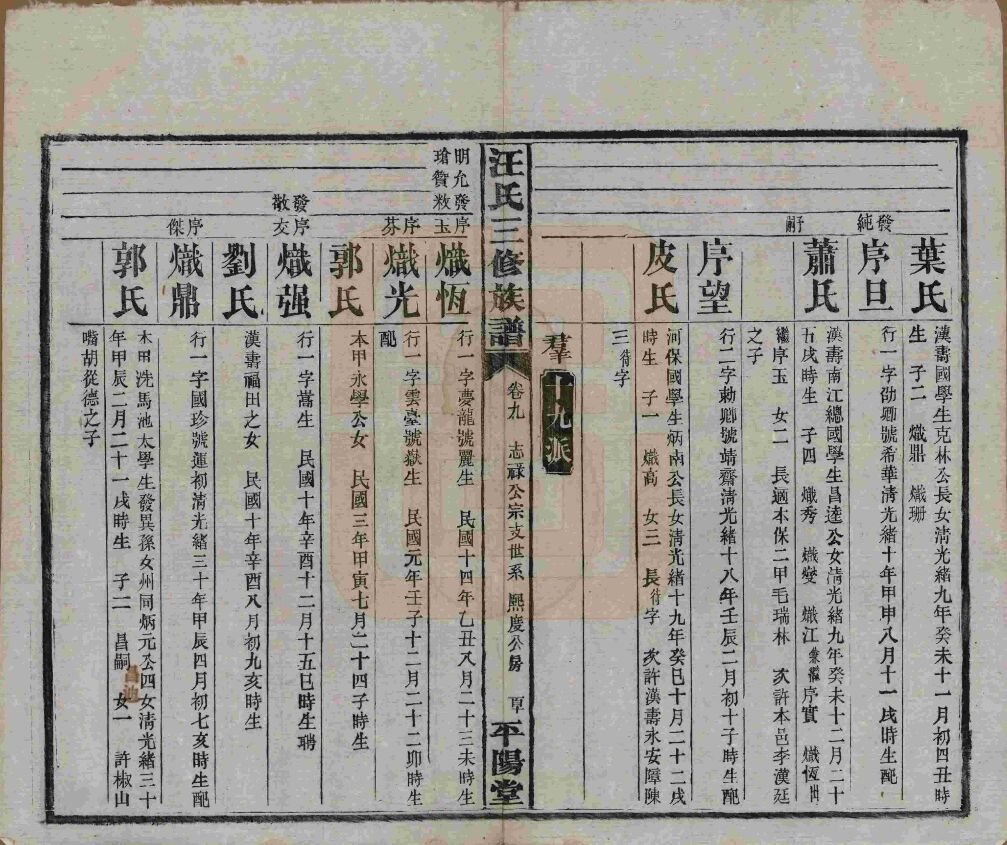 葉氏
漢壽國學生克林公長女清光緒九年癸未十一月初四丑時
生 子二 熾鼎 熾珊
發純
序旦
行一字劭卿號希華清光緒十年甲申八月十一戌時生配
蕭氏
漢壽南江總國學生昌逵公女清光緒九年癸未十二月二十
五戌時生 子四 熾秀 熾燮 熾江兼繼序實 熾恆出
嗣
繼序玉 女二 長適本保二甲毛瑞林 次許本邑李漢廷
之子
序望
行二字勅卿號靖齋清光緒十八年壬辰二月初十子時生配
皮氏
河保國學生炳南公長女清光緒十九年癸巳十月二十二戌
時生 子一 熾高 女三 長待字 次許漢壽永安障陳
三待字
羣
十九派
汪氏三修族譜
卷九 志祿公宗支世系 熙慶公房
平陽堂
明允發序
瑲贊敉玉
熾恆
行一字夢龍號麗生 民國十四年乙丑八月二十三未時生
序芬
熾光
行一字雲臺號嶽生 民國元年壬子十二月二十二卯時生
配
郭氏
本甲永學公女 民國三年甲寅七月二十四子時生
發散
序交
熾强
行一字嵩生 民國十年辛酉十二月十五巳時生聘
劉氏
漢壽福田之女 民國十年辛酉八月初九亥時生
序傑
熾鼎
行一字國珍號運初清光緒三十年甲辰四月初七亥時生配
郭氏
本甲洗馬池太學生發異孫女州同炳元公四女清光緒三十
年甲辰二月二十一戌時生 子二 昌嗣 昌迪 女一 許椒山
嘴胡從德之子